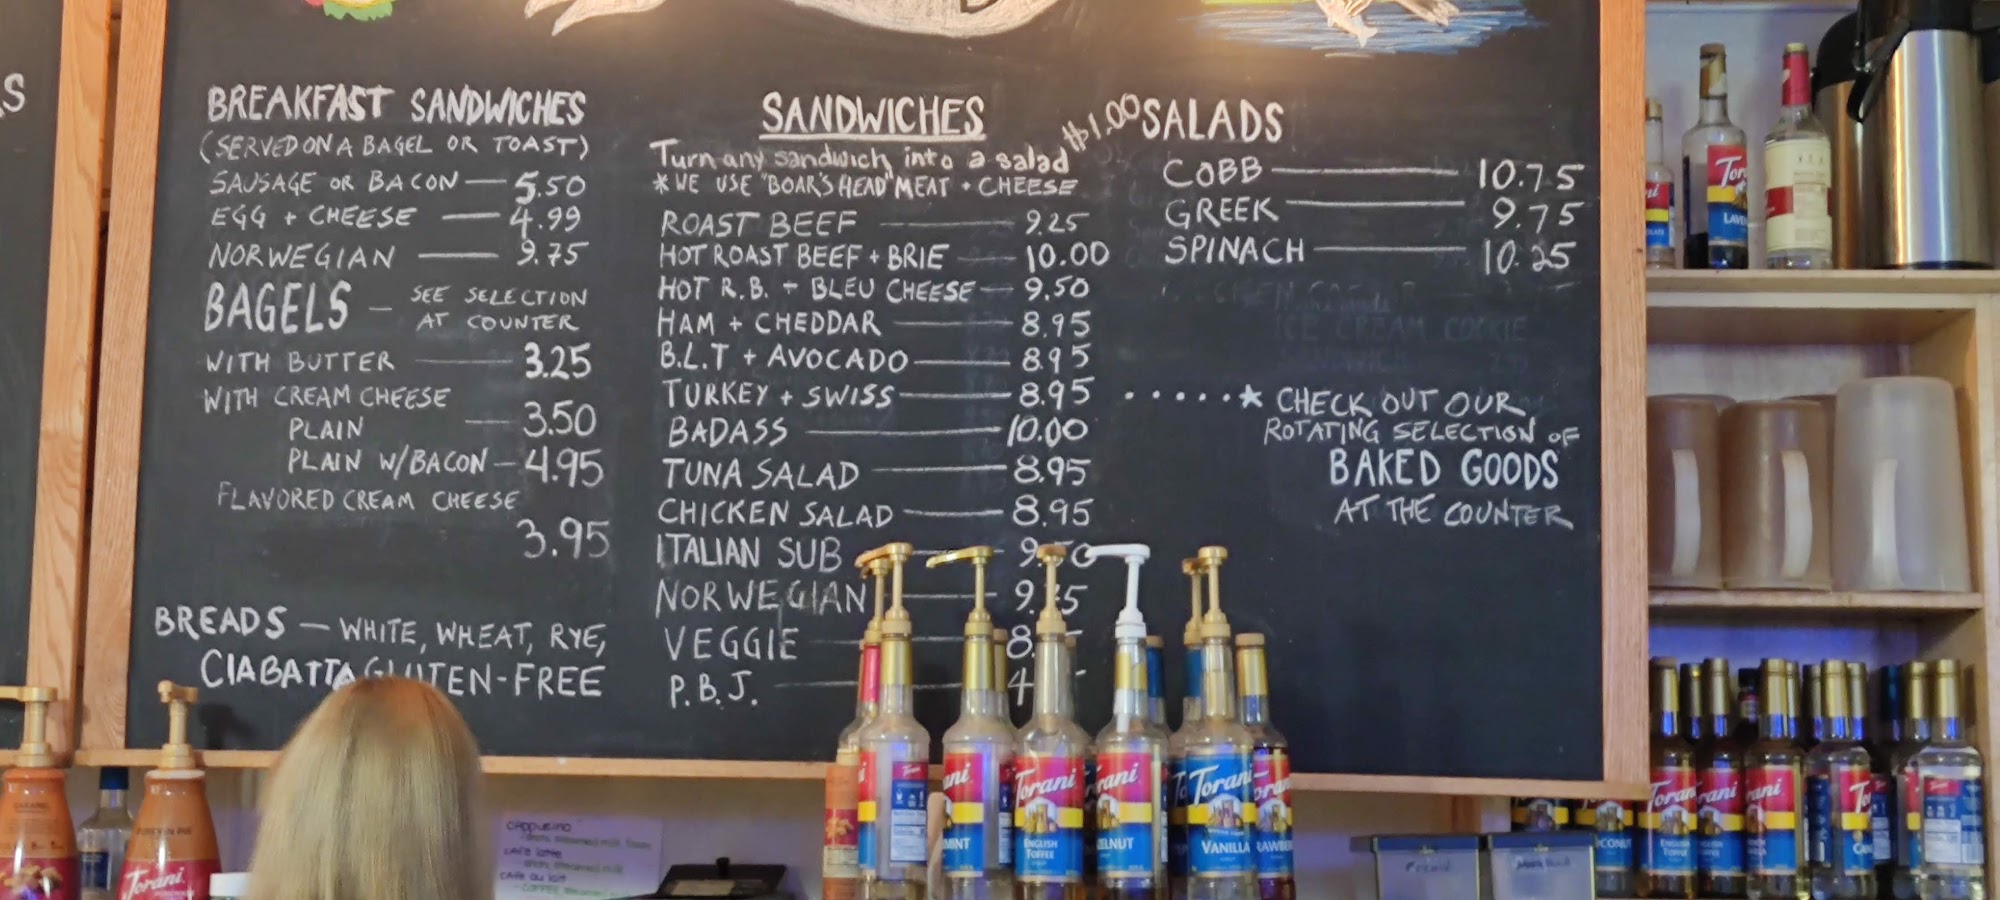 BREAKFAST SANDWICHES
(SERVED ON A BAGEL OR TOAST)
SAUSAGE OR BACON — 5.50
EGG + CHEESE — 4.99
NORWEGIAN — 9.75
BAGELS – SEE SELECTION
AT COUNTER
WITH BUTTER — 3.25
WITH CREAM CHEESE
PLAIN — 3.50
PLAIN W/BACON – 4.95
FLAVORED CREAM CHEESE
3.95
BREADS – WHITE, WHEAT, RYE,
CIABATTA GLUTEN-FREE
SANDWICHES
Turn any sandwich into a salad $1.00
*WE USE "BOAR'S HEAD" MEAT + CHEESE
ROAST BEEF — 9.25
HOT ROAST BEEF + BRIE — 10.00
HOT R.B. + BLEU CHEESE — 9.50
HAM + CHEDDAR — 8.95
B.L.T + AVOCADO — 8.95
TURKEY + SWISS — 8.95
BADASS — 10.00
TUNA SALAD — 8.95
CHICKEN SALAD — 8.95
ITALIAN SUB — 9.50
NORWEGIAN —
VEGGIE —
P.B.J. —
SALADS
COBB — 10.75
GREEK — 9.75
SPINACH — 10.25
ICE CREAM COOKIE
.....★ CHECK OUT OUR
ROTATING SELECTION OF
BAKED GOODS
AT THE COUNTER
Torani
Torani
ENGLISH
TOFFEE
Torani
VANILLA
cappucino
cafe latte
cafe au lait